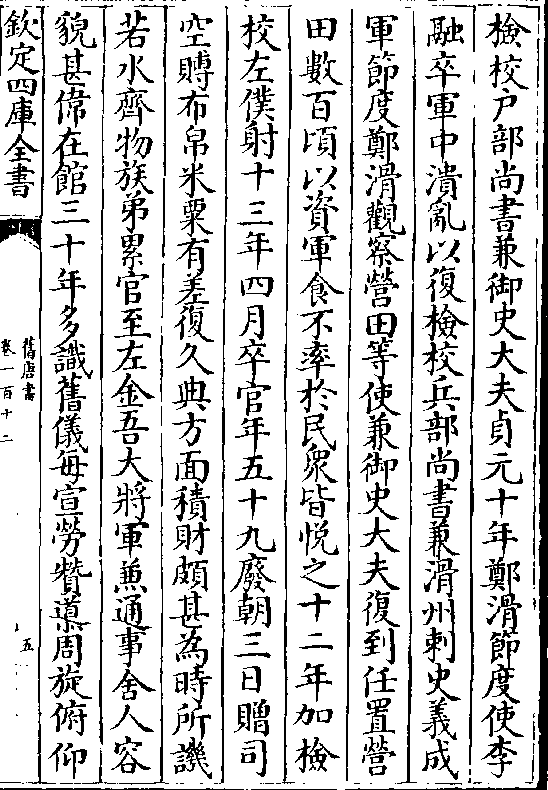 檢校户部尚書兼御史大夫貞元十年鄭滑節度使李
融卒軍中潰亂以復檢校兵部尚書兼滑州刺史義成
軍節度鄭滑觀察營田等使兼御史大夫復到任置營
田數百頃以資軍食不率於民衆皆悦之十二年加檢
校左僕射十三年四月卒官年五十九廢朝三日贈司
空賻布帛米粟有差復久典方面積財頗甚為時所譏
若水齊物族弟累官至左金吾大將軍兼通事舍人容
貌甚偉在館三十年多識舊儀每宣勞贊導周旋俯仰
欽定四庫全書
舊唐書
卷一百十二
五